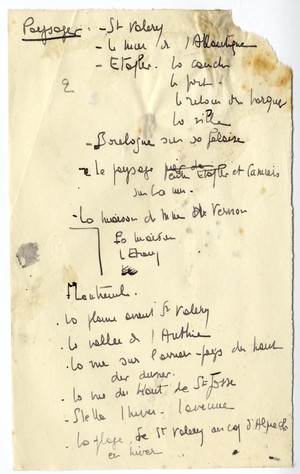 Paysages - St Valery
- le mur de l'Atlantique
- Etaples. La canche
le port.
le retour des barques
la ville
2
- Boulogne sur sa falaise
- le paysage entre Etaples et Camiers
sur la mer.
- La maison de Mme de Vernon
La maison
L'Etang
Montreuil.
. La plaine avant St Valery
. La vallée de l'Authie
. La vue sur l'arrière-pays du haut
des dunes.
. La vue du haut de St Josse
- Stella l'hiver - l'avenue
- La plage, de St Valery au cap d'Alprech
en hiver